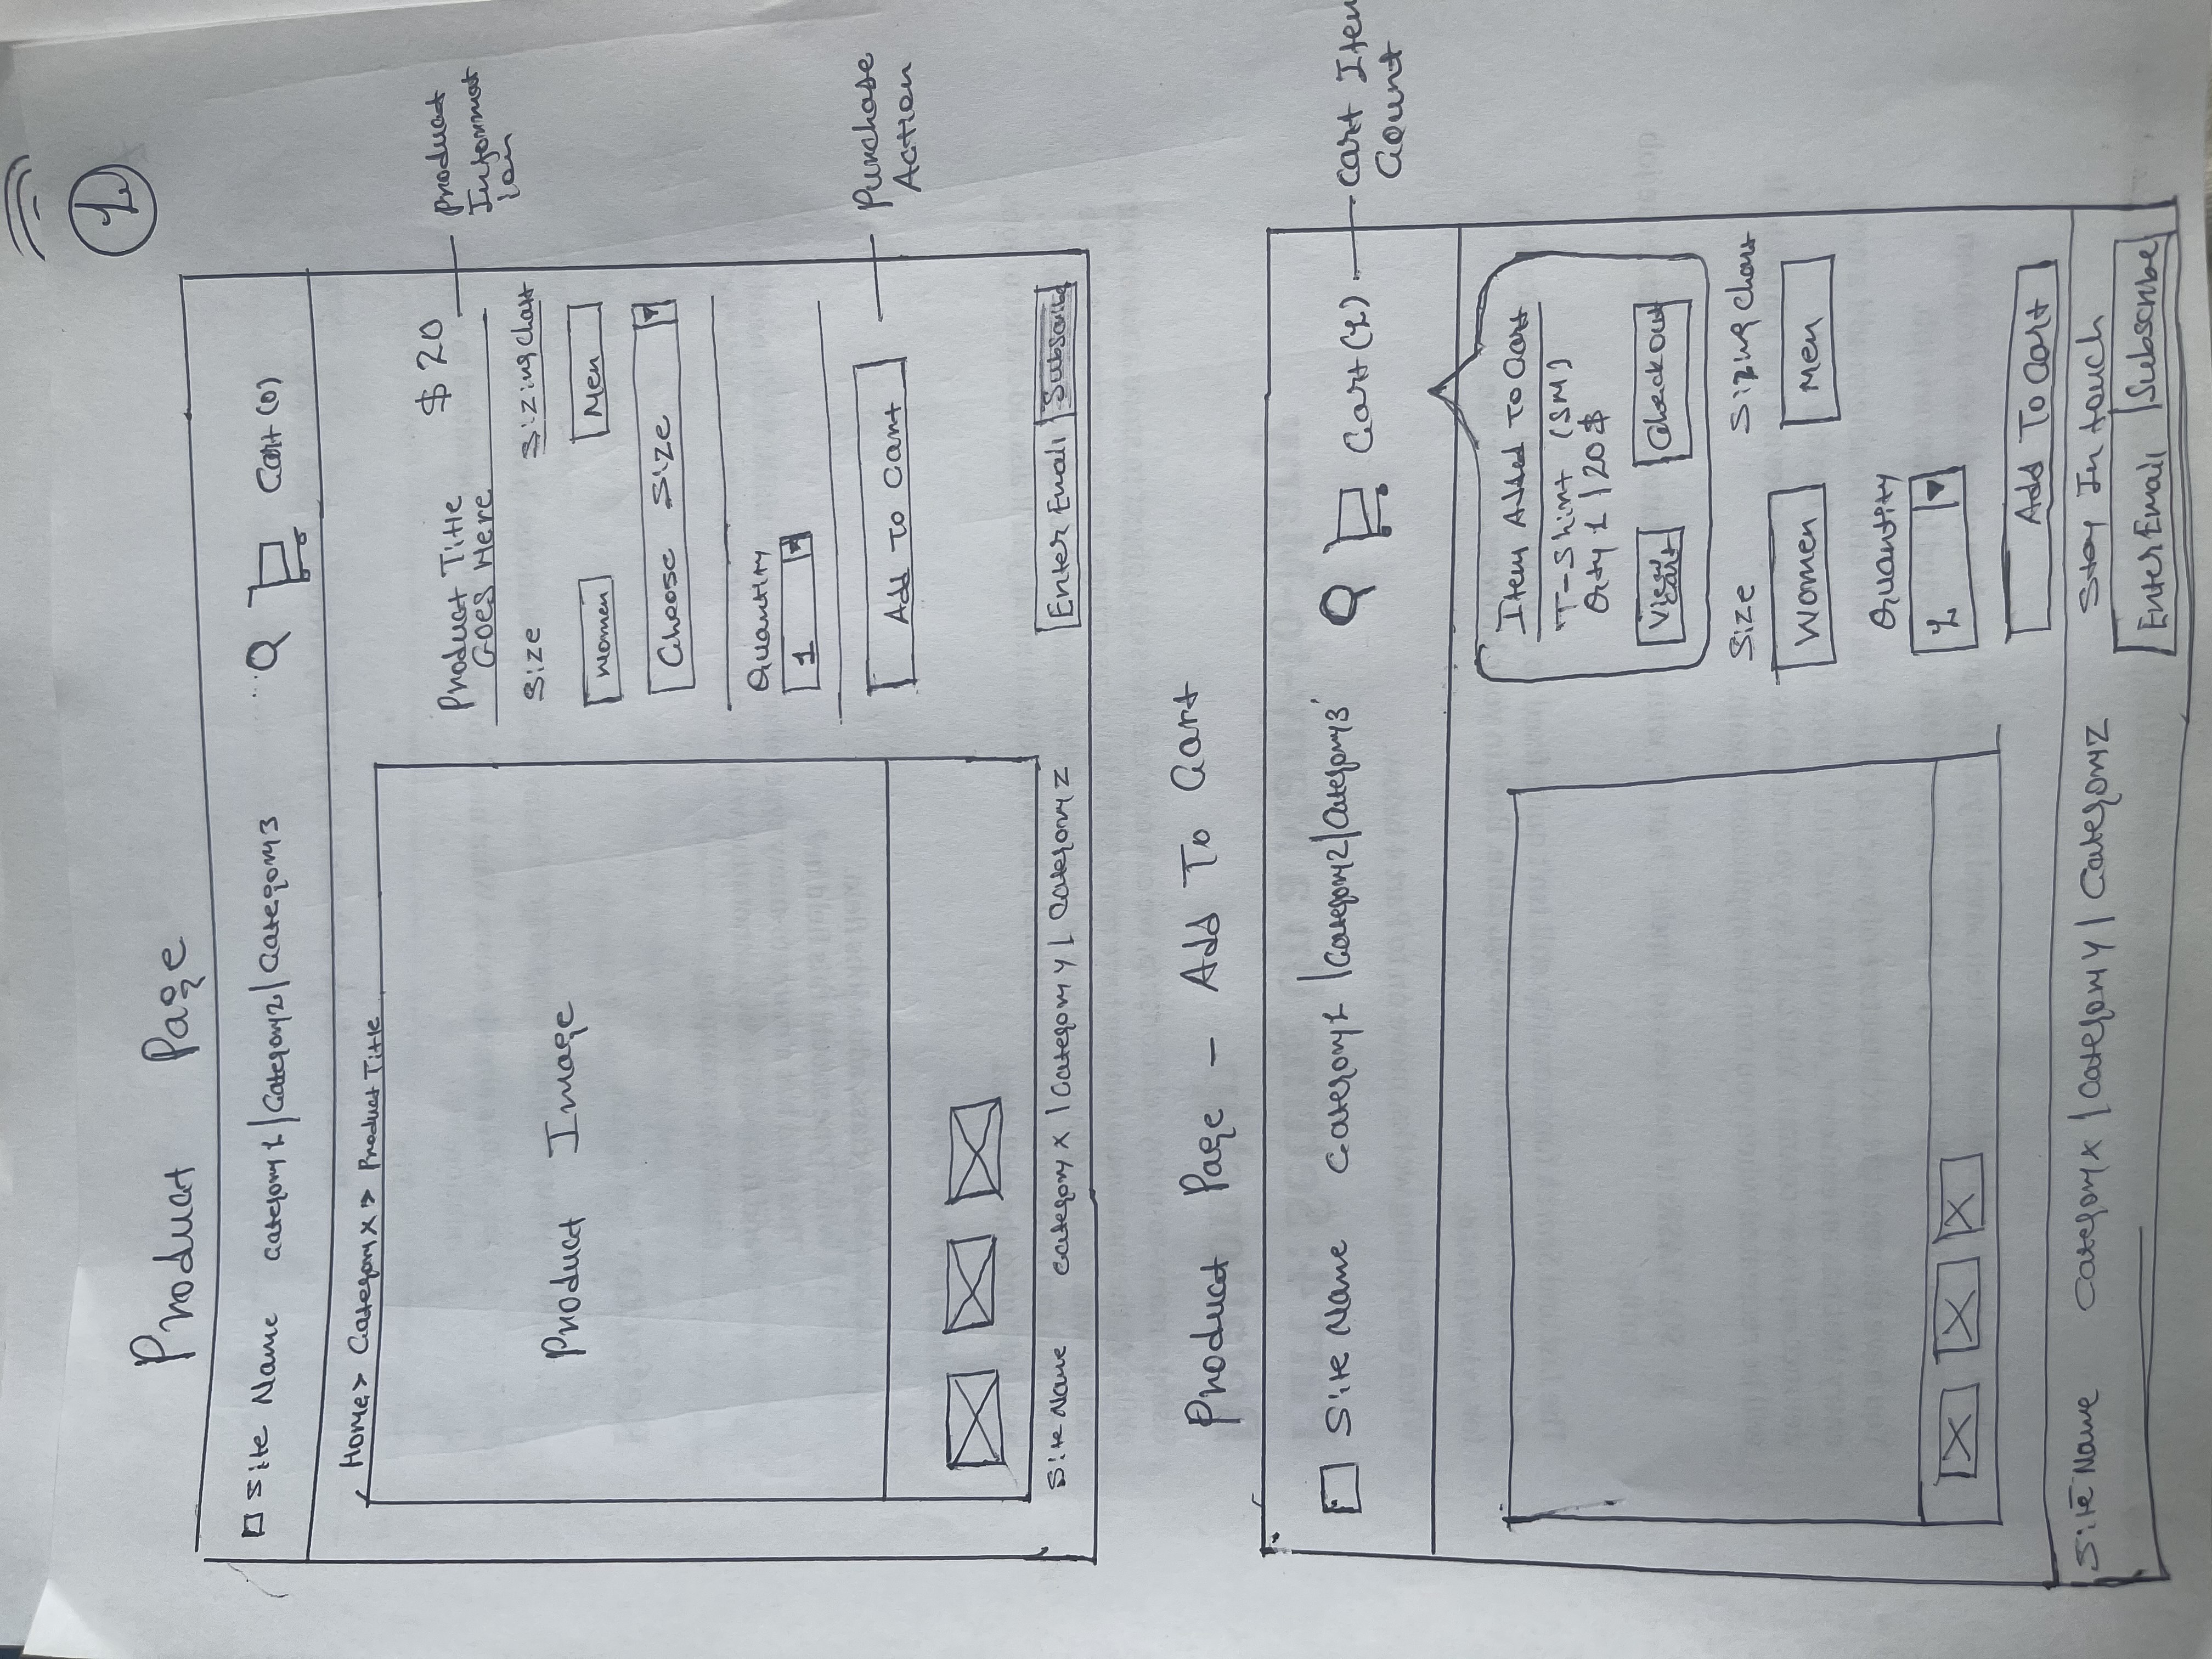 1
Product Page
Site Name Category 1 | Category 2 | Category 3 Cart (0)
Home > Category X > Product Title
Product Image
Product Title $ 20
Goes Here
Product
Informat
ion
Size Sizing Chart
Women Men
Choose Size
Quantity
1
Add To Cart
Purchase
Action
Site Name Category X | Category Y | Category Z Enter Email Subscribe
Product Page - Add To Cart
Site Name Category 1 | Category 2 | Category 3 Cart (1)
Cart Item
Count
Item Added To Cart
T-Shirt (SM)
Qty 1 | 20 $
View Cart Check Out
Size Sizing Chart
Women Men
Quantity
1
Add To Cart
Site Name Category X | Category Y | Category Z Stay In touch
Enter Email Subscribe